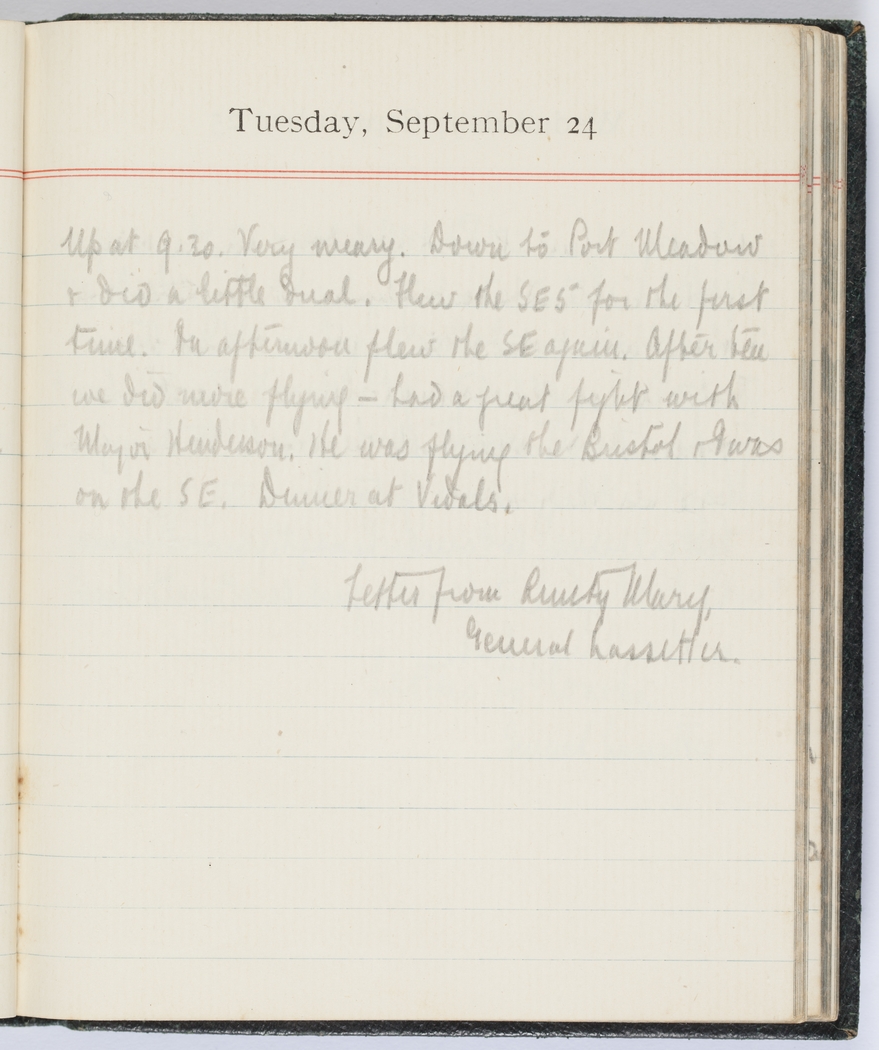 Tuesday, September 24
Up at 9.30. Very weary. Down to Port Meadow
& did a little dual. Flew the SE5 for the first
time. In afternoon flew the SE again. After tea
we did more flying – had a great fight with
Major Henderson. He was flying the Bristol & I was
on the SE. Dinner at Vidals.
Letter from Mary,
General Lassetter.